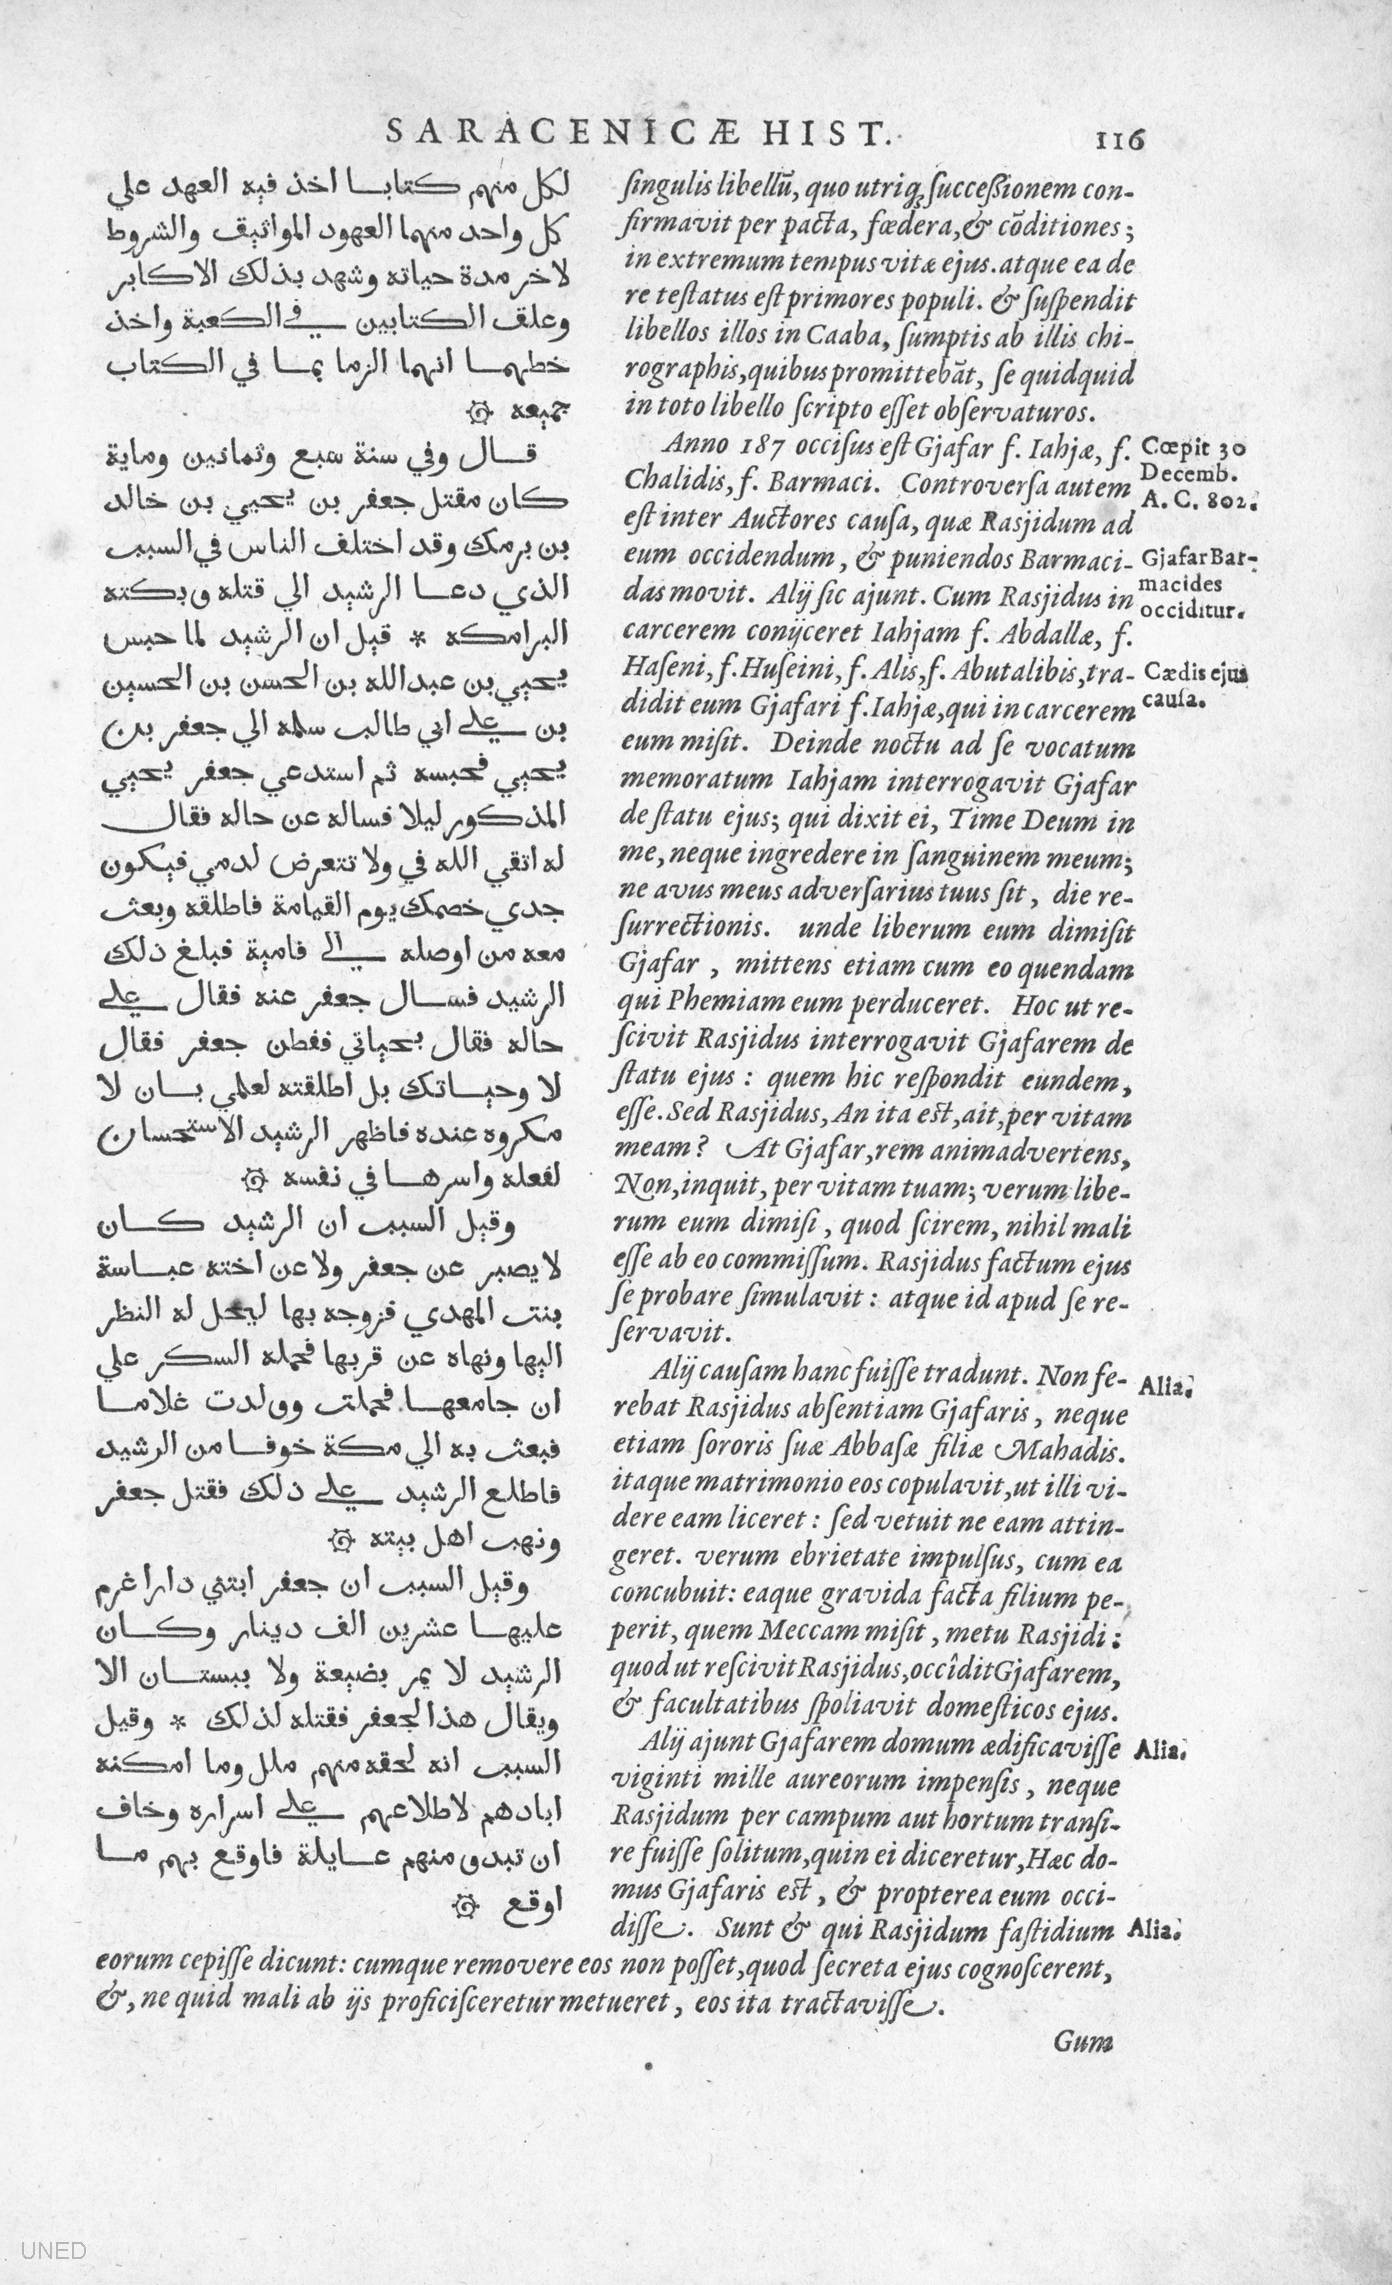 SARACENICÆ HIST.
116
لكل منهم كتابا اخذ فيه العهد علي
كل واحد منهما العهود المواثيق والشروط
لاخر مدة حياته وشهد بذلك الاكابر
وعلق الكتابين في الكعبة واخذ
خطهما انهما الزما بما في الكتاب
جميعه
قال وفي سنة سبع وثمانين وماية
كان مقتل جعفر بن يحيي بن خالد
بن برمك وقد اختلف الناس في السبب
الذي دعا الرشيد الي قتله وبكته
البرامكه * قيل ان الرشيد لما حبس
يحيي بن عبد الله بن الحسن بن الحسين
بن علي ابي طالب سلمه الي جعفر بن
يحيي فحبسه ثم استدعي جعفر يحيي
المذكور ليلا فساله عن حاله فقال
له اتقي الله في ولا تتعرض لدمي فيكون
جدي خصمك يوم القيامة فاطلقه وبعث
معه من اوصله الي فامية فبلغ ذلك
الرشيد فسال جعفر عنه فقال علي
حاله فقال بحياتي ففطن جعفر فقال
لا وحياتك بل اطلقته لعلمي بان لا
مكروه عنده فاظهر الرشيد الاستحسان
لفعله واسرها في نفسه
وقيل السبب ان الرشيد كان
لا يصبر عن جعفر ولا عن اخته عباسة
بنت المهدي فزوجه بها ليحل له النظر
اليها ونهاه عن قربها فحمله السكر علي
ان جامعها فحملت وولدت غلاما
فبعث به الي مكة خوفا من الرشيد
فاطلع الرشيد علي ذلك فقتل جعفر
ونهب اهل بيته
وقيل السبب ان جعفر ابتني دارا غرم
عليها عشرين الف دينار وكان
الرشيد لا يمر بضيعة ولا ببستان الا
ويقال هذا لجعفر فقتله لذلك * وقيل
السبب انه لحقه منهم ملل وما امكنه
ابادهم لاطلاعهم علي اسراره وخاف
ان تبدو منهم عايلة فاوقع بهم ما
اوقع
singulis libellū, quo utriq; successionem con-
firmavit per pacta, fœdera, & cōditiones;
in extremum tempus vitæ ejus. atque ea de
re testatus est primores populi. & suspendit
libellos illos in Caaba, sumptis ab illis chi-
rographis, quibus promittebāt, se quidquid
in toto libello scripto esset observaturos.
Anno 187 occisus est Gjafar f. Iahjæ, f.
Chalidis, f. Barmaci. Controversa autem
est inter Auctores causa, quæ Rasjidum ad
eum occidendum, & puniendos Barmaci-
das movit. Alij sic ajunt. Cum Rasjidus in
carcerem conijceret Iahjam f. Abdallæ, f.
Haseni, f. Huseini, f. Alis, f. Abutalibis, tra-
didit eum Gjafari f. Iahjæ, qui in carcerem
eum misit. Deinde noctu ad se vocatum
memoratum Iahjam interrogavit Gjafar
de statu ejus; qui dixit ei, Time Deum in
me, neque ingredere in sanguinem meum;
ne avus meus adversarius tuus sit, die re-
surrectionis. unde liberum eum dimisit
Gjafar, mittens etiam cum eo quendam
qui Phemiam eum perduceret. Hoc ut re-
scivit Rasjidus interrogavit Gjafarem de
statu ejus: quem hic respondit eundem,
esse. Sed Rasjidus, An ita est, ait, per vitam
meam? At Gjafar, rem animadvertens,
Non, inquit, per vitam tuam; verum libe-
rum eum dimisi, quod scirem, nihil mali
esse ab eo commissum. Rasjidus factum ejus
se probare simulavit: atque id apud se re-
servavit.
Alij causam hanc fuisse tradunt. Non fe-
rebat Rasjidus absentiam Gjafaris, neque
etiam sororis suæ Abbasæ filiæ Mahadis.
itaque matrimonio eos copulavit, ut illi vi-
dere eam liceret: sed vetuit ne eam attin-
geret. verum ebrietate impulsus, cum ea
concubuit: eaque gravida facta filium pe-
perit, quem Meccam misit, metu Rasjidi:
quod ut rescivit Rasjidus, occîdit Gjafarem,
& facultatibus spoliavit domesticos ejus.
Alij ajunt Gjafarem domum ædificavisse
viginti mille aureorum impensis, neque
Rasjidum per campum aut hortum transi-
re fuisse solitum, quin ei diceretur, Hæc do-
mus Gjafaris est, & propterea eum occi-
disse. Sunt & qui Rasjidum fastidium
eorum cepisse dicunt: cumque removere eos non posset, quod secreta ejus cognoscerent,
&, ne quid mali ab ijs proficisceretur metueret, eos ita tractavisse.
Gum
Cœpit 30
Decemb.
A. C. 802.
Gjafar Bar-
macides
occiditur.
Cædis ejus
causa.
Alia.
Alia.
Alia.
UNED